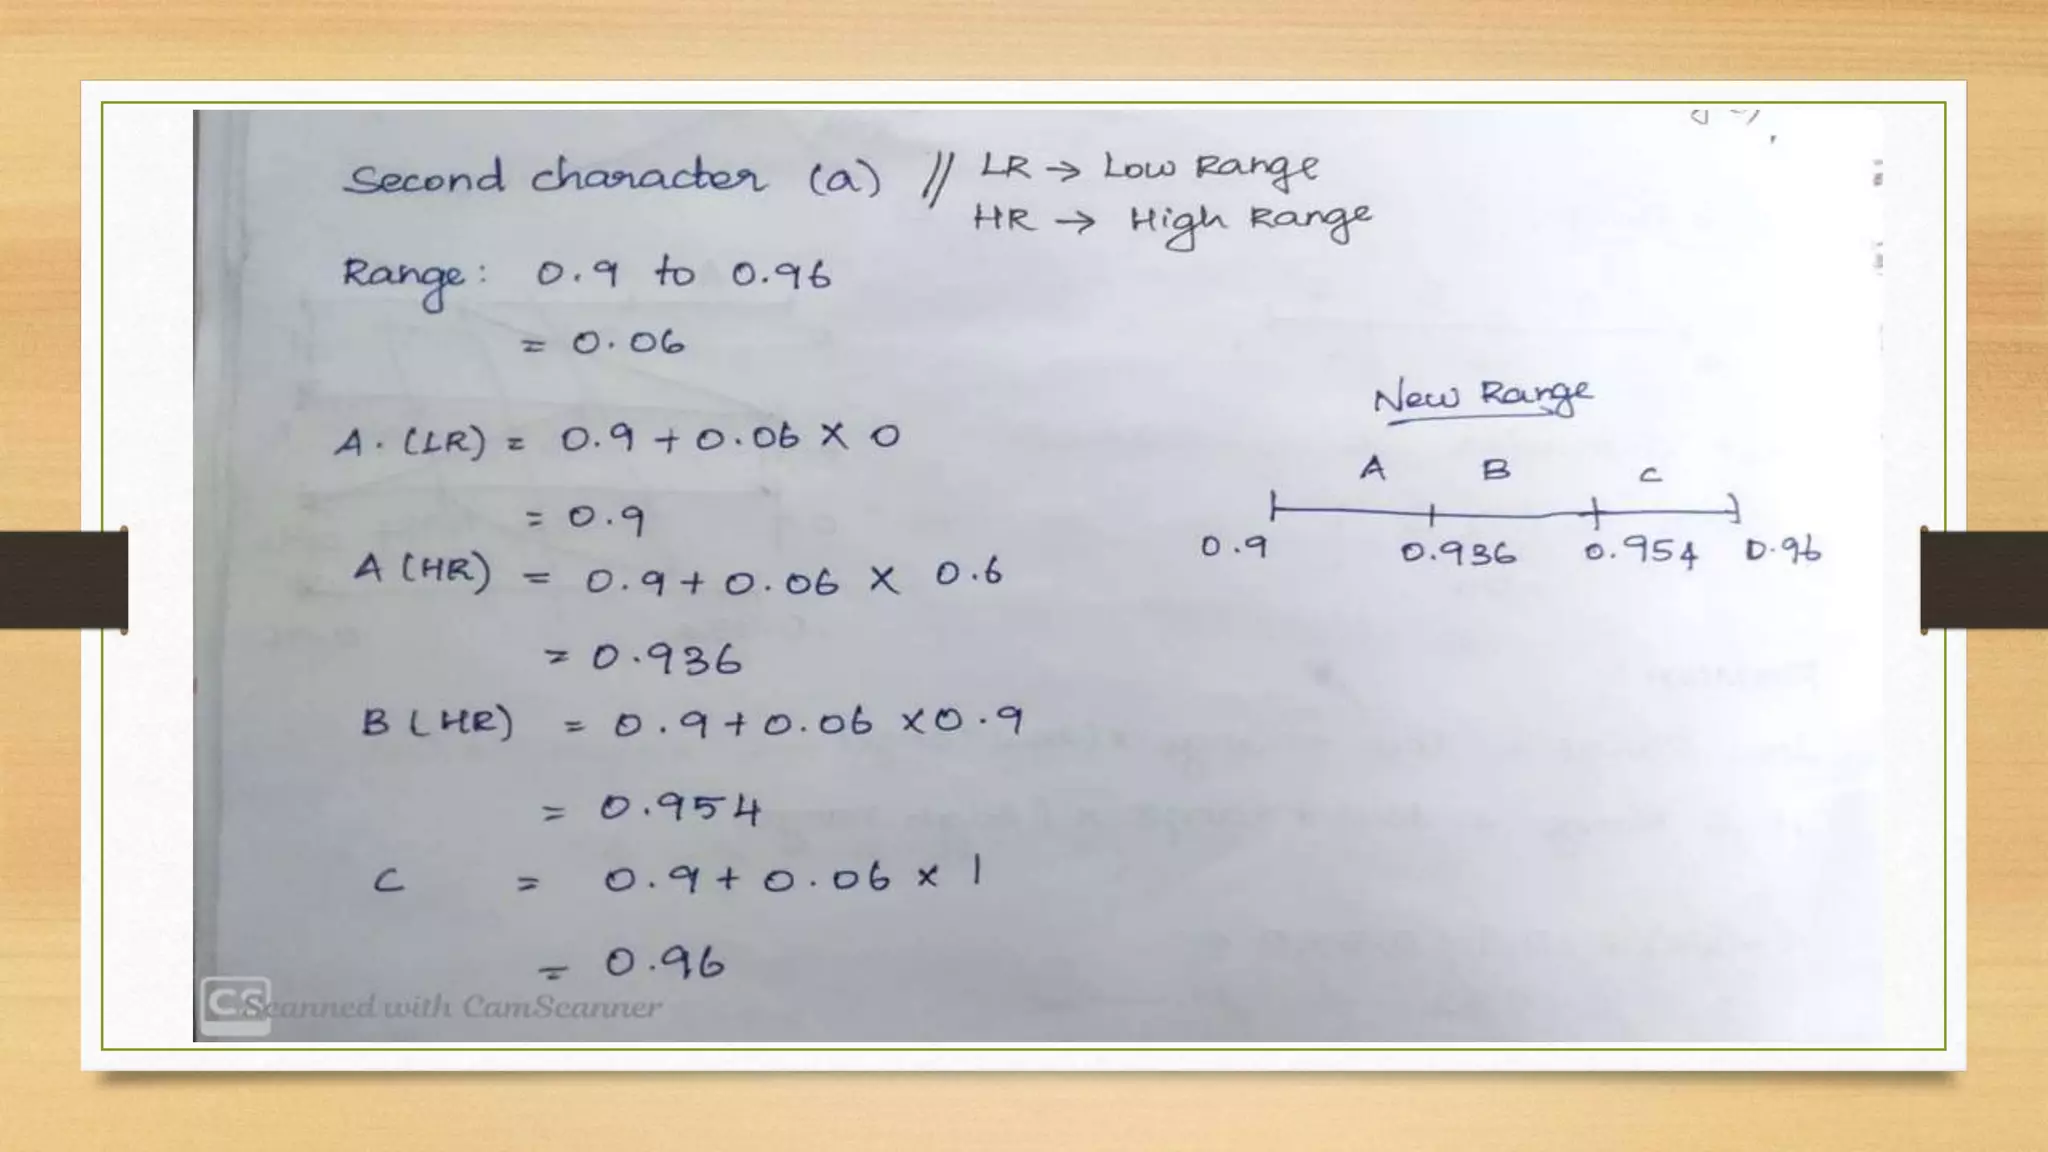 Second character (a) // LR → Low Range
HR → High Range
Range: 0.9 to 0.96
= 0.06
A. (LR) = 0.9 + 0.06 X 0
= 0.9
A (HR) = 0.9 + 0.06 X 0.6
= 0.936
B (HR) = 0.9 + 0.06 X 0.9
= 0.954
C = 0.9 + 0.06 x 1
= 0.96
New Range
A B C
0.9 0.936 0.954 0.96
CS Scanned with CamScanner